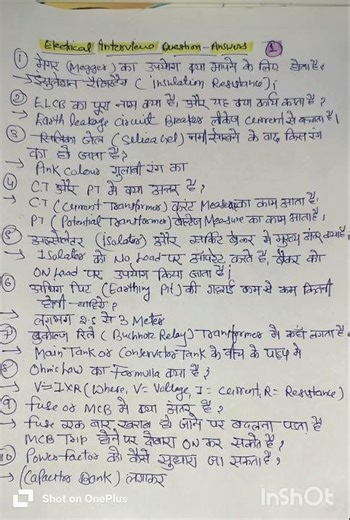 Electrical Interview Question - Answers 1
① मेगर (Megger) का उपयोग क्या मापने के लिए होता है?
→ इन्सुलेशन रेसिस्टेंस (insulation Resistance);
② ELCB का पूरा नाम क्या है, और यह क्या काम करता है?
→ Earth leakage circuit Breaker लीकेज current से बचाता है।
③ सिलिका जेल (Selica Gel) नमी सोखने के बाद किस रंग
का हो जाता है?
→ Pink colour गुलाबी रंग का
④ CT और PT में क्या अन्तर है?
→ CT (Current Transformer) करंट Measure का काम आता है,
PT (Potential Transformer) वोल्टेज Measure का काम आता है,
⑤ आइसोलेटर (isolator) और सर्किट ब्रेकर में मुख्य अंतर क्या है
→ Isolator को No Load पर ऑपरेट करते है, ब्रेकर को
ON Load पर उपयोग किया जाता है।
⑥ अर्थिंग पिट (Earthing Pit) की गहराई कम से कम कितनी
होनी चाहिए?
→ लगभग 2.5 से 3 Meter
⑦ बुकोल्ज रिले (Buchholz Relay) Transformer में कहाँ लगता है
→ Main Tank or Conservator Tank के बीच के पाइप में
⑧ Ohm's Law का Formula क्या है?
→ V=IXR (Where, V= Voltage, I = Current, R= Resistance)
⑨ Fuse or MCB में क्या अंतर है?
→ Fuse एक बार खराब हो जाने पर बदलना पड़ता है
MCB Trip होने पर दोबारा ON कर सकते है?
⑩ Power factor को कैसे सुधारा जा सकता है,
→ (Capacitor Bank) लगाकर
Shot on OnePlus
InShOt